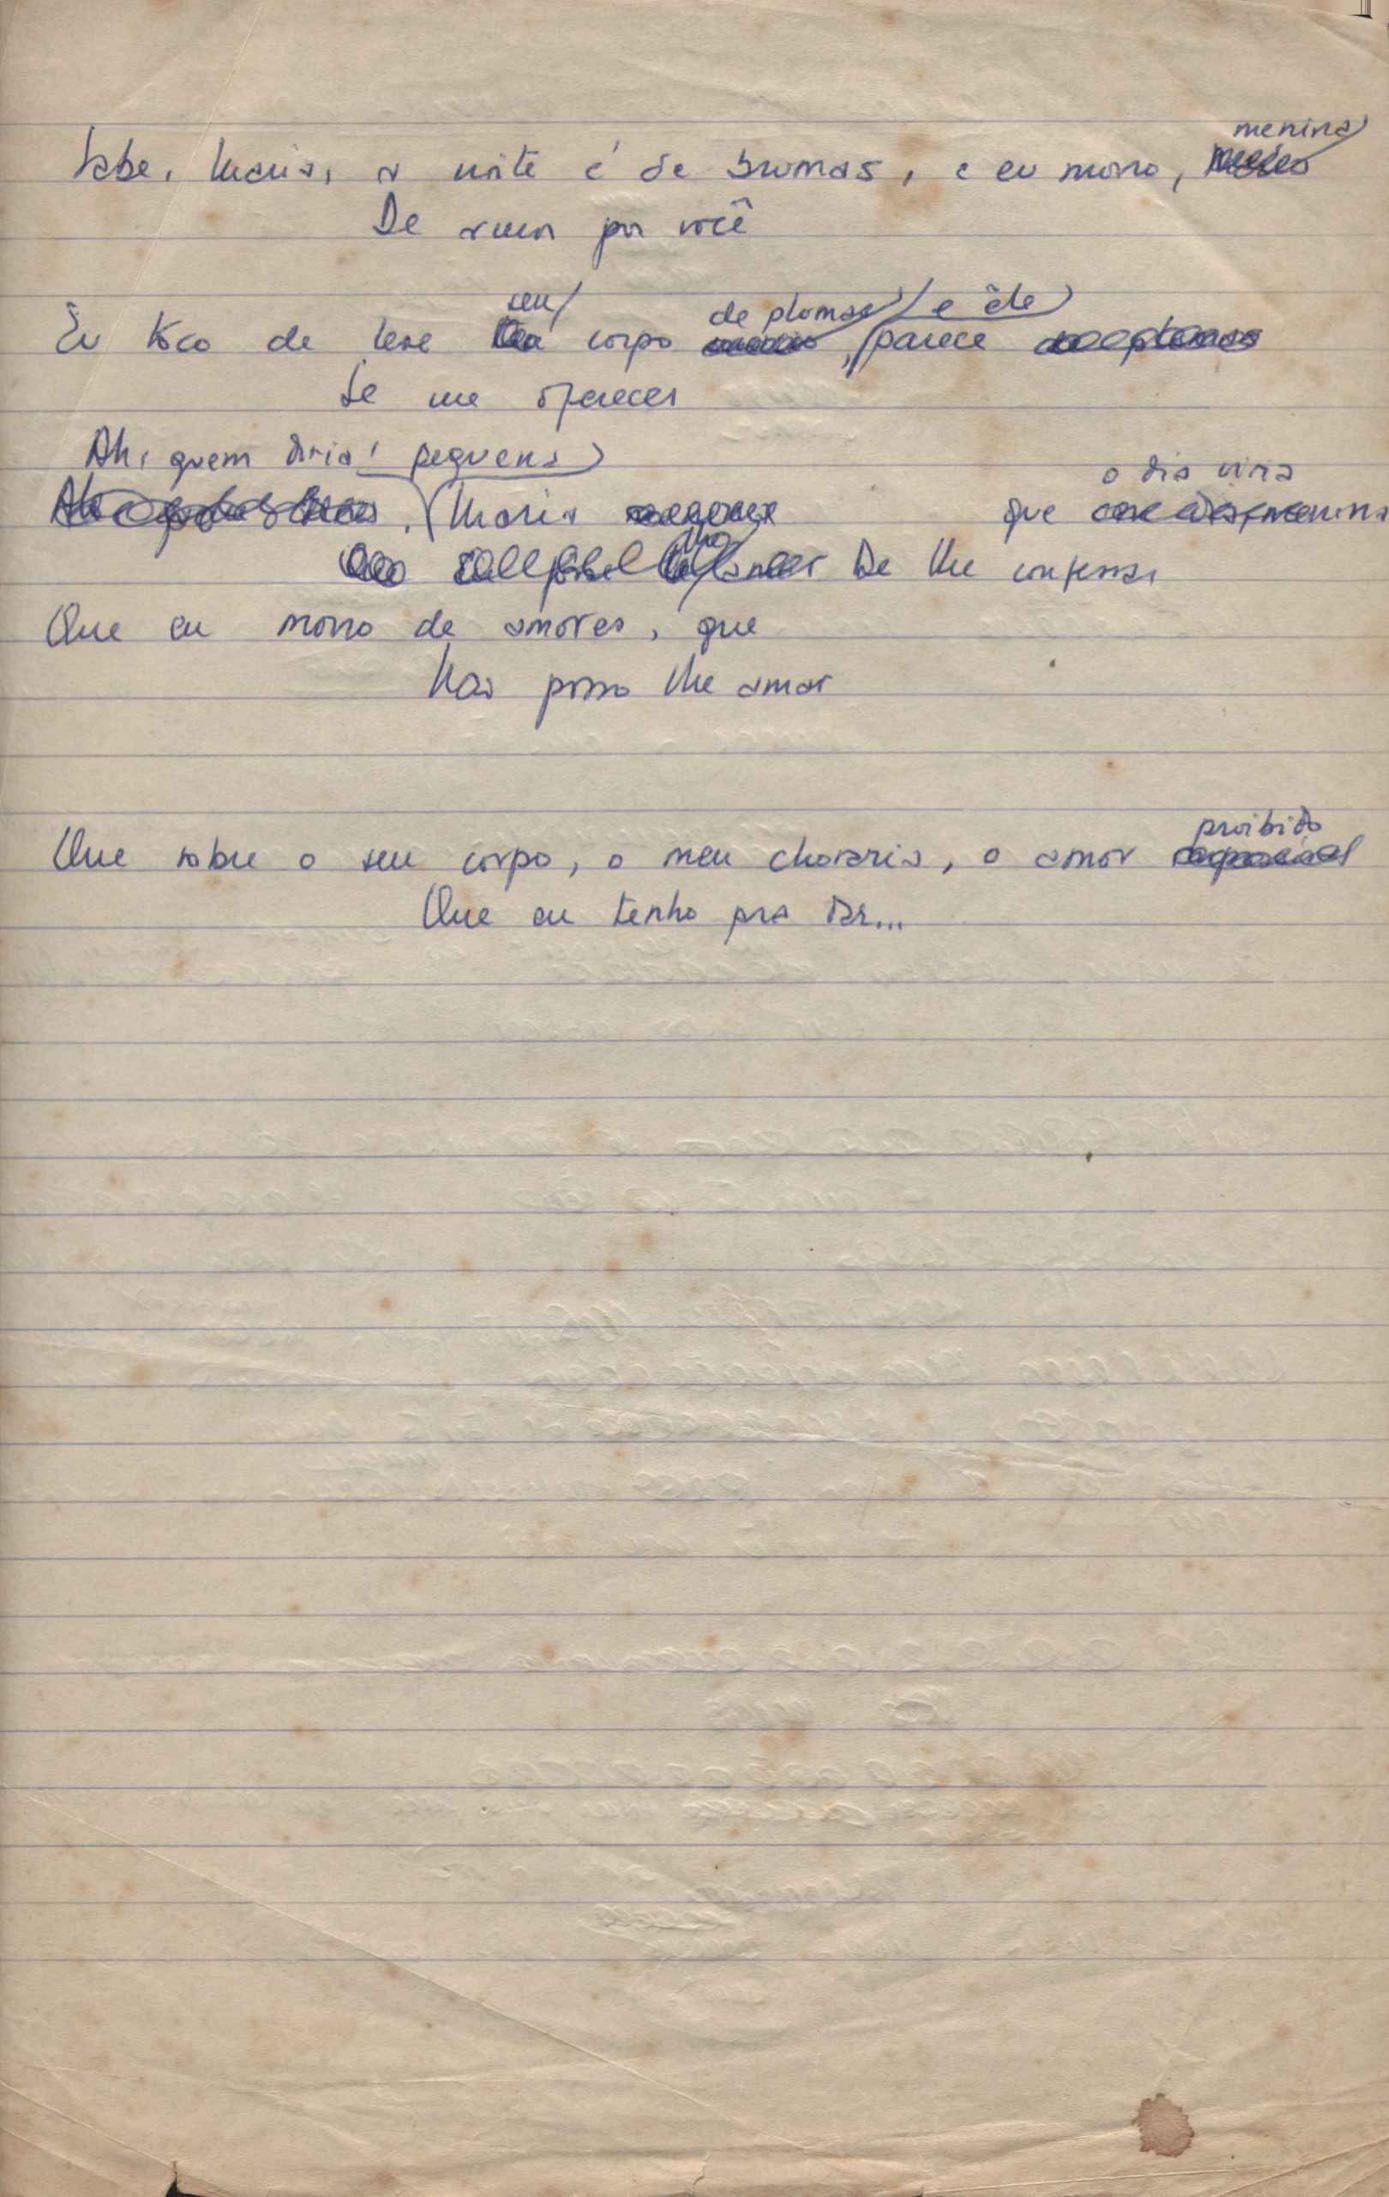 menina
Sabe, Maria, a noite é de brumas, e eu morro,
De amor por você
seu de plumas e êle
Eu toco de leve corpo , parece
Se me oferecer
Ah, quem diria, pequena
o dia viria
, Maria que
De lhe confessar
Que eu morro de amores, que
Não posso lhe amar
proibido
Que sobre o seu corpo, o meu choraria, o amor
Que eu tenho pra dar...